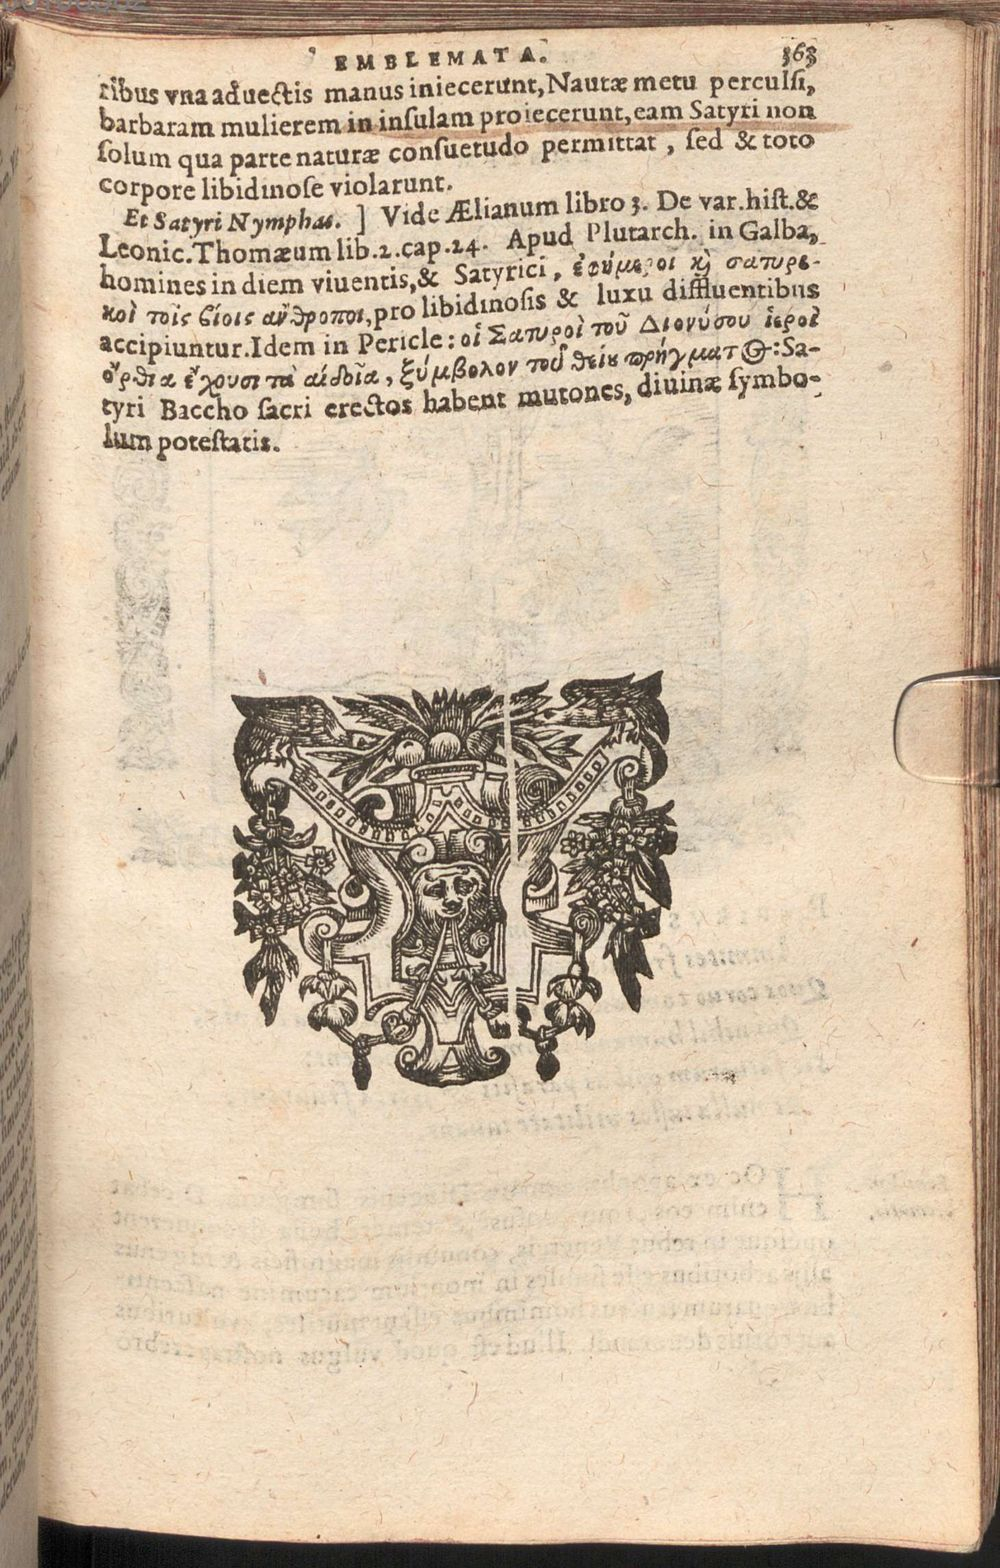 EMBLEMATA. 363
ribus vna aduectis manus iniecerunt, Nautæ metu perculsi,
barbaram mulierem in insulam proiecerunt, eam Satyri non
solum qua parte naturæ consuetudo permittat, sed & toto
corpore libidinose violarunt.
Et Satyri Nymphas. ] Vide Ælianum libro 3. De var. hist. &
Leonic. Thomæum lib. 2. cap. 24. Apud Plutarch. in Galba,
homines in diem viuentis, & Satyrici, ἐφήμεροι κὴ σατυρι-
κοὶ τοῖς βίοις ἄνθροποι, pro libidinosis & luxu diffluentibus
accipiuntur. Idem in Pericle: οἱ Σατυροὶ τοῦ Διονύσου ἱεροὶ
ὄρθια ἔχουσι τὰ αἰδοῖα, ξύμβολον τοῦ θείου πρήγματος: Sa-
tyri Baccho sacri erectos habent mutones, diuinæ symbo-
lum potestatis.